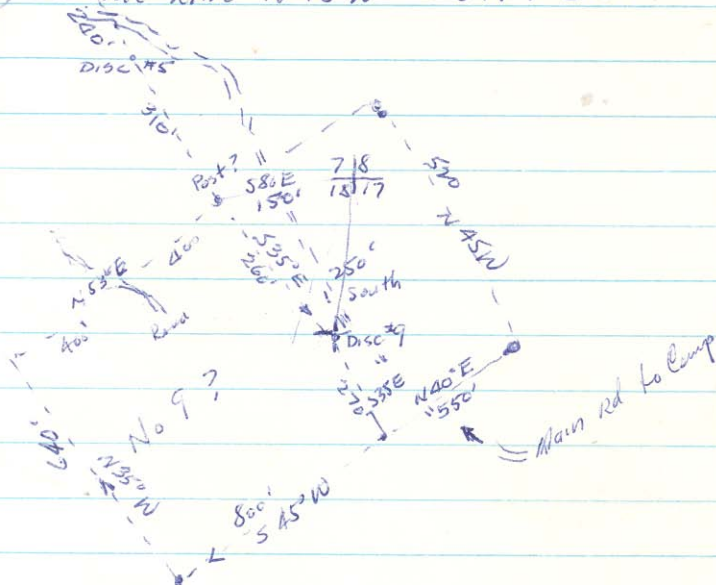 240'
Disc #5
310'
Post?
S80E
150'
7 8
18 17
520
N 45W
400
S35°E
266'
250'
South
N 53°E
400'
Road
Disc #9
270' S35E
N40°E
550'
Main Rd to Camp
No 9?
640'
N35°W
800'
S 45° W